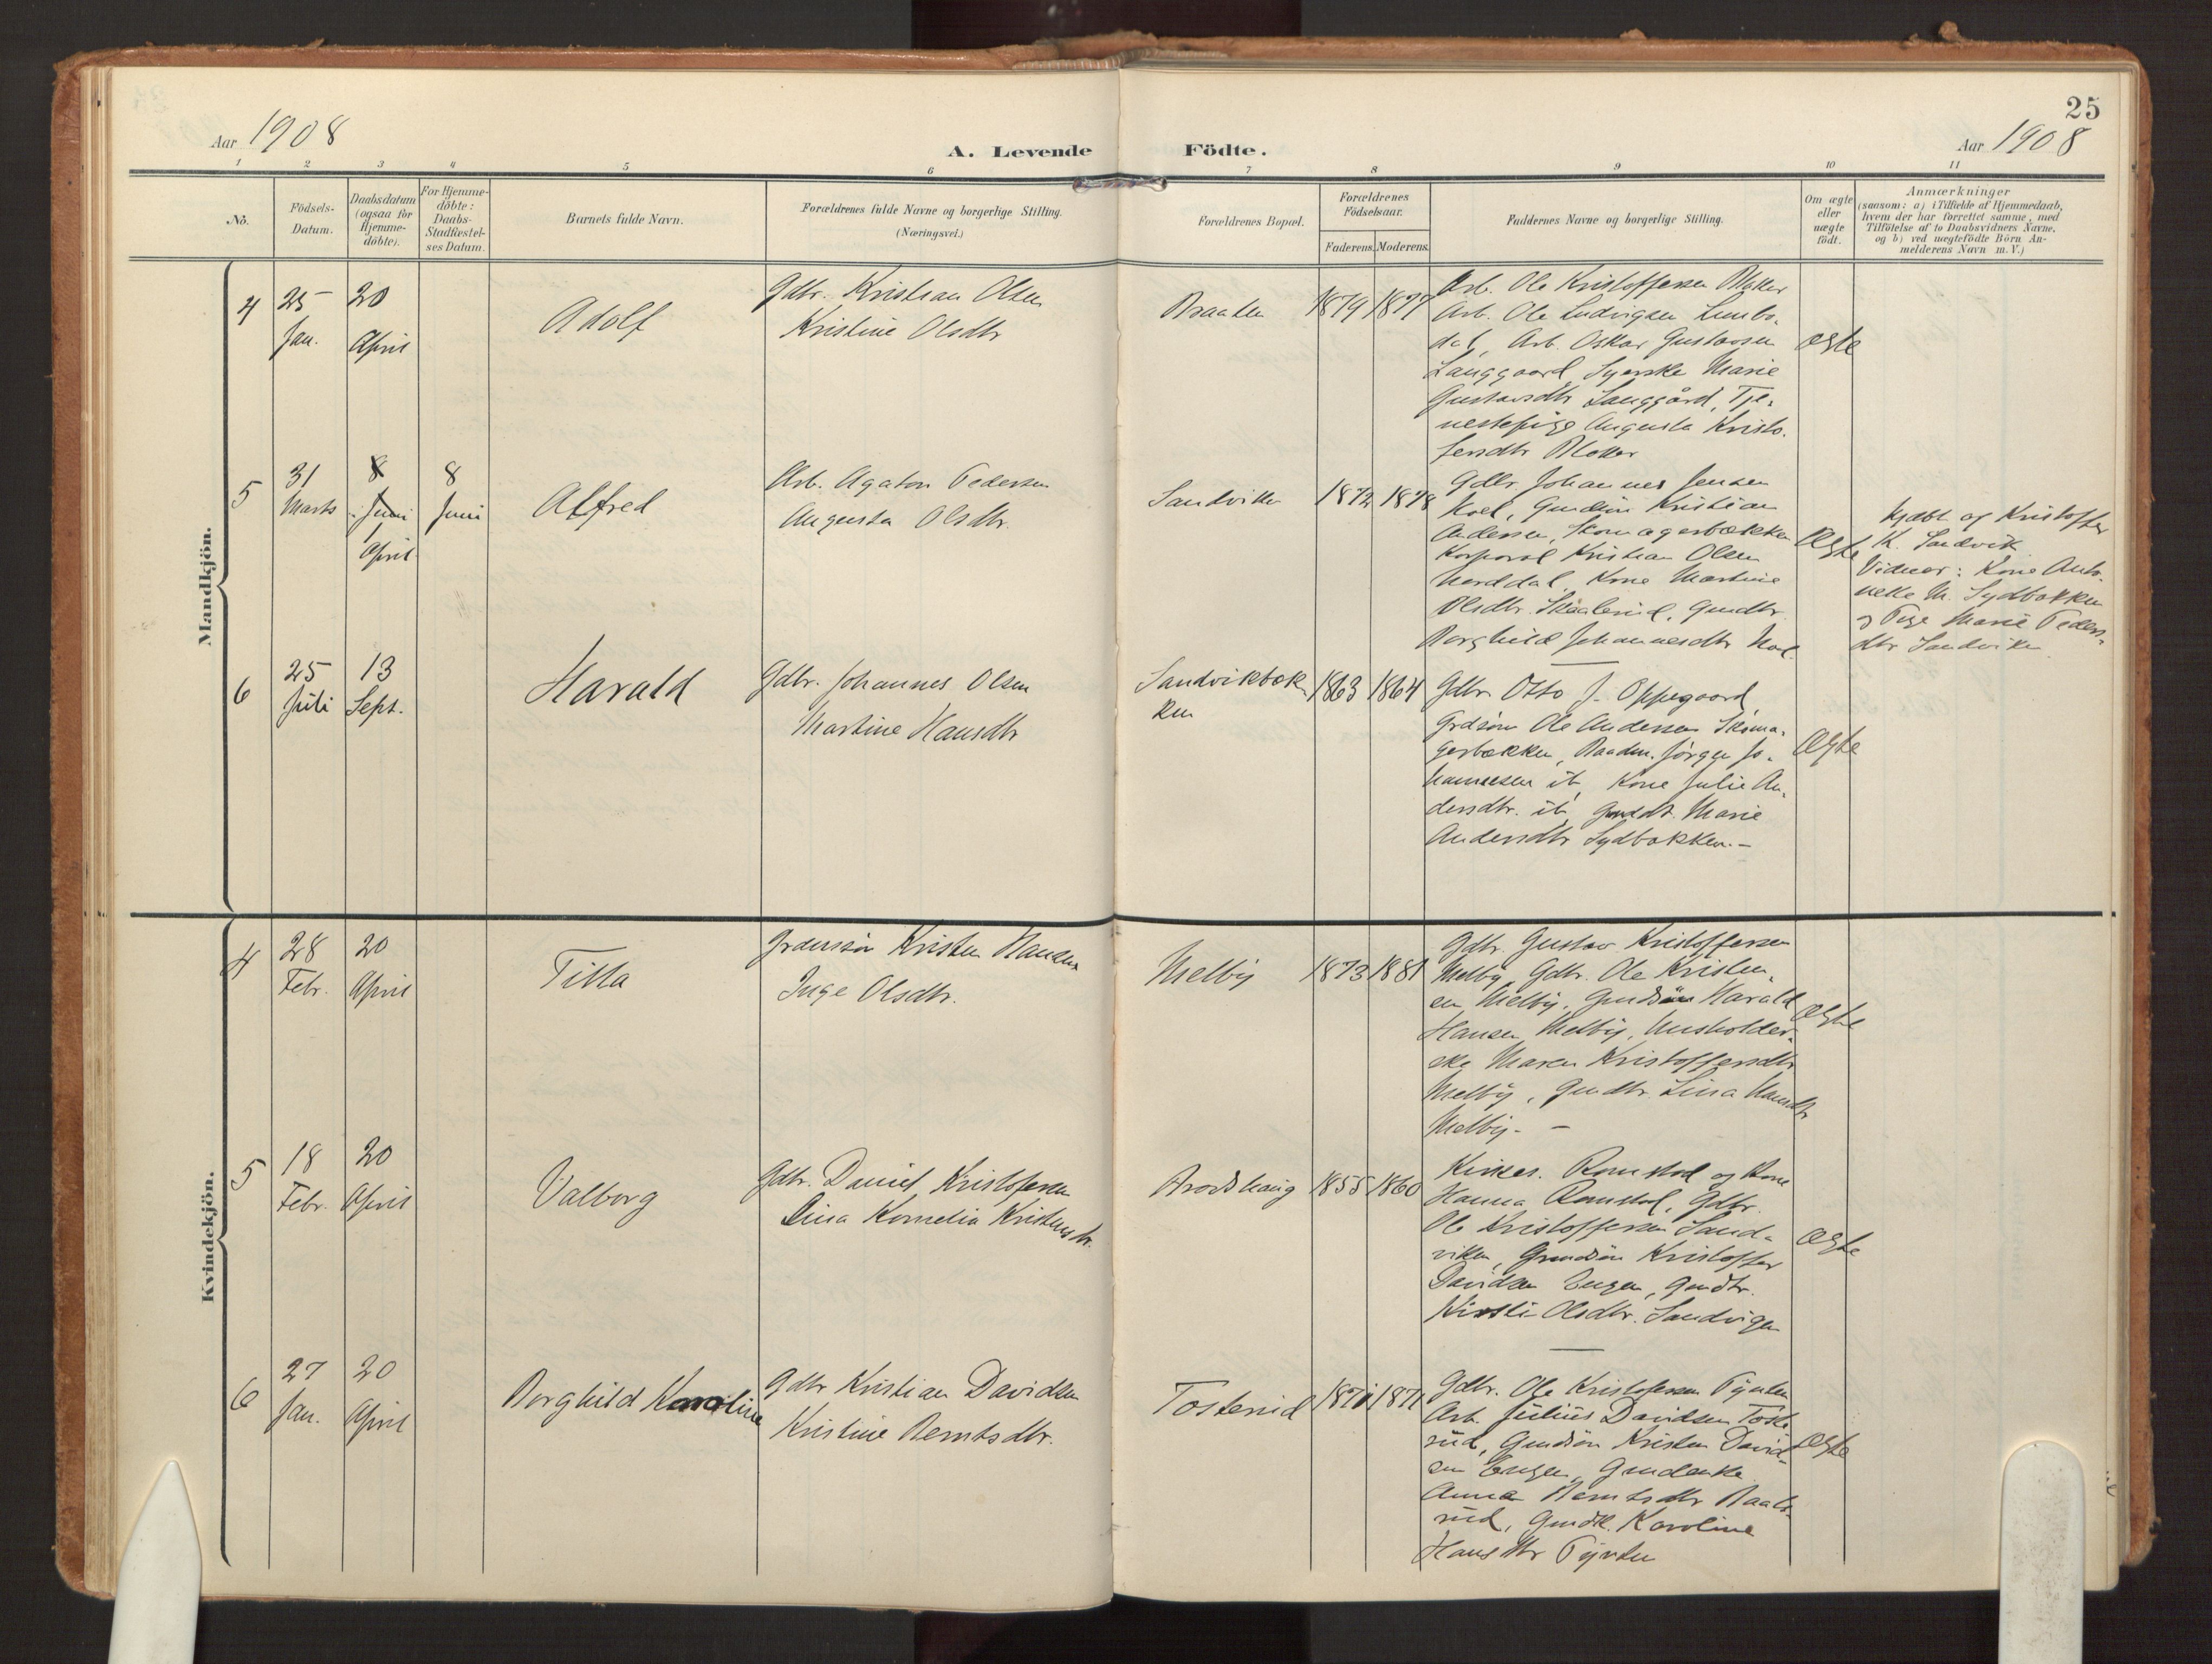 25
Aar 1908
A. Levende Födte.
Aar 1908
1 2 3 4 5 6 7 8 9 10 11
No.
Födsels-
Datum.
Daabsdatum
(ogsaa for
Hjemme-
döbte).
For Hjemme-
döbte:
Daabs-
Stadfæstel-
ses Datum.
Barnets fulde Navn.
Forældrenes fulde Navne og borgerlige Stilling.
(Næringsvei.)
Forældrenes Bopæl.
Forældrenes
Födselsaar.
Faderens. Moderens.
Faddernes Navne og borgerlige Stilling.
Om ægte
eller
uægte
födt.
Anmærkninger
(saasom: a) i Tilfælde af Hjemmedaab,
hvem der har forrettet samme, med
Tilföielse af to Daabsvidners Navne,
og b) ved uægtefödte Börn An-
melderens Navn m. V.)
Mandkjön.
4
25
Jan.
20
April
Adolf
Gdbr. Kristian Olsen
Kristine Olsdtr
Braaten
1879 1877
Arb. Ole Kristoffersen
Arb. Ole Ludvigsen Lunbo-
dal, Arb. Oskar Gustavsen
Langgaard, Syerske Marie
Gustavsdtr Langgård, Tje-
nestepige Augusta Kristo-
fersdtr
ægte
5
31
Marts
8
Juni
April
8
Juni
Alfred
Arb. Agaton Pedersen
Augusta Olsdtr.
Sandviken
1872 1878
Gdbr. Johannes Jensen
Noel, Gmdsön Kristian
Andersen, Skomagerbækken
Korporal Kristian Olsen
Norddal, Kone Martine
Olsdtr. Skaalerud, Gmdtr.
Borghild Johannesdtr Noel
Ægte
hjdbt af Kristoffer
K. Sandvik
Vidner: Kone Anto-
nette M. Sydbakken
og Pige Marie Peders-
dtr Sandviken
6
25
Juli
13
Sept.
Harald
Gdbr. Johannes Olsen
Martine Hansdtr
Sandvikbæk
ken
1863 1864
Gdbr. Otto J. Oppegaard
Grdsön Ole Andersen Skoma-
gerbækken, Baadm. Jörgen Jo-
hannesen ib, Kone Julie An-
dersdtr. ib, Gmddt. Marie
Andersdtr Sydbakken.-
Ægte
Kvindekjön.
4
28
Febr.
20
April
Titta
Grdmssön Kristen Hansen
Inge Olsdtr.
Melby
1873 1881
Gdbr. Gustav Kristoffersen
Melby, Gdbr. Ole Kristen-
sen Melby, Gmdsön Harald
Hansen Melby, Husholder-
ske Maren Kristoffersdtr
Melby, Gmdtr. Lina Hansdtr
Melby. -
Ægte
5
18
Febr.
20
April
Valborg
Gdbr. Daniel Kristofersen
Lina Kornelia Kristensdtr.
Brodshaug
1855 1860
Kirkes. Romstad og Kone
Hanna Romstad, Gdbr.
Ole Kristoffersen Sand-
viken, Gmdsön Kristoffer
Davidsen Engen, Gmdtr.
Kirsti Olsdtr. Sandvigen
Ægte
6
27
Jan.
20
April
Borghild Karoline
Gdbr Kristian Davidsen
Kristine Berntsdtr.
Tosterud
1871 1871
Gdbr. Ole Kristofersen Tynten
Arb. Julius Davidsen Toste-
rud, Gmdsön Kristen David-
sen Engen, Gmdenke
Anna Berntsdtr Raab-
rud, Gmdtr. Karoline
Hansdtr Tynten
Ægte